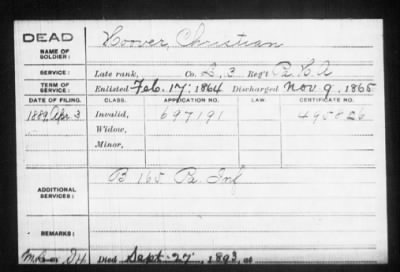 DEAD
NAME OF SOLDIER:
Hoover, Christian
SERVICE:
Late rank, Co. L, 3 Reg't Pa H A
TERM OF SERVICE:
Enlisted Feb. 17: 1864 Discharged Nov 9, 1865
DATE OF FILING. CLASS. APPLICATION NO. LAW. CERTIFICATE NO.
1889, Apr. 3 Invalid, 697191
Widow,
Minor,
ADDITIONAL SERVICES:
B 165 Pa Inf
REMARKS:
Died Sept. 27, 1893, at